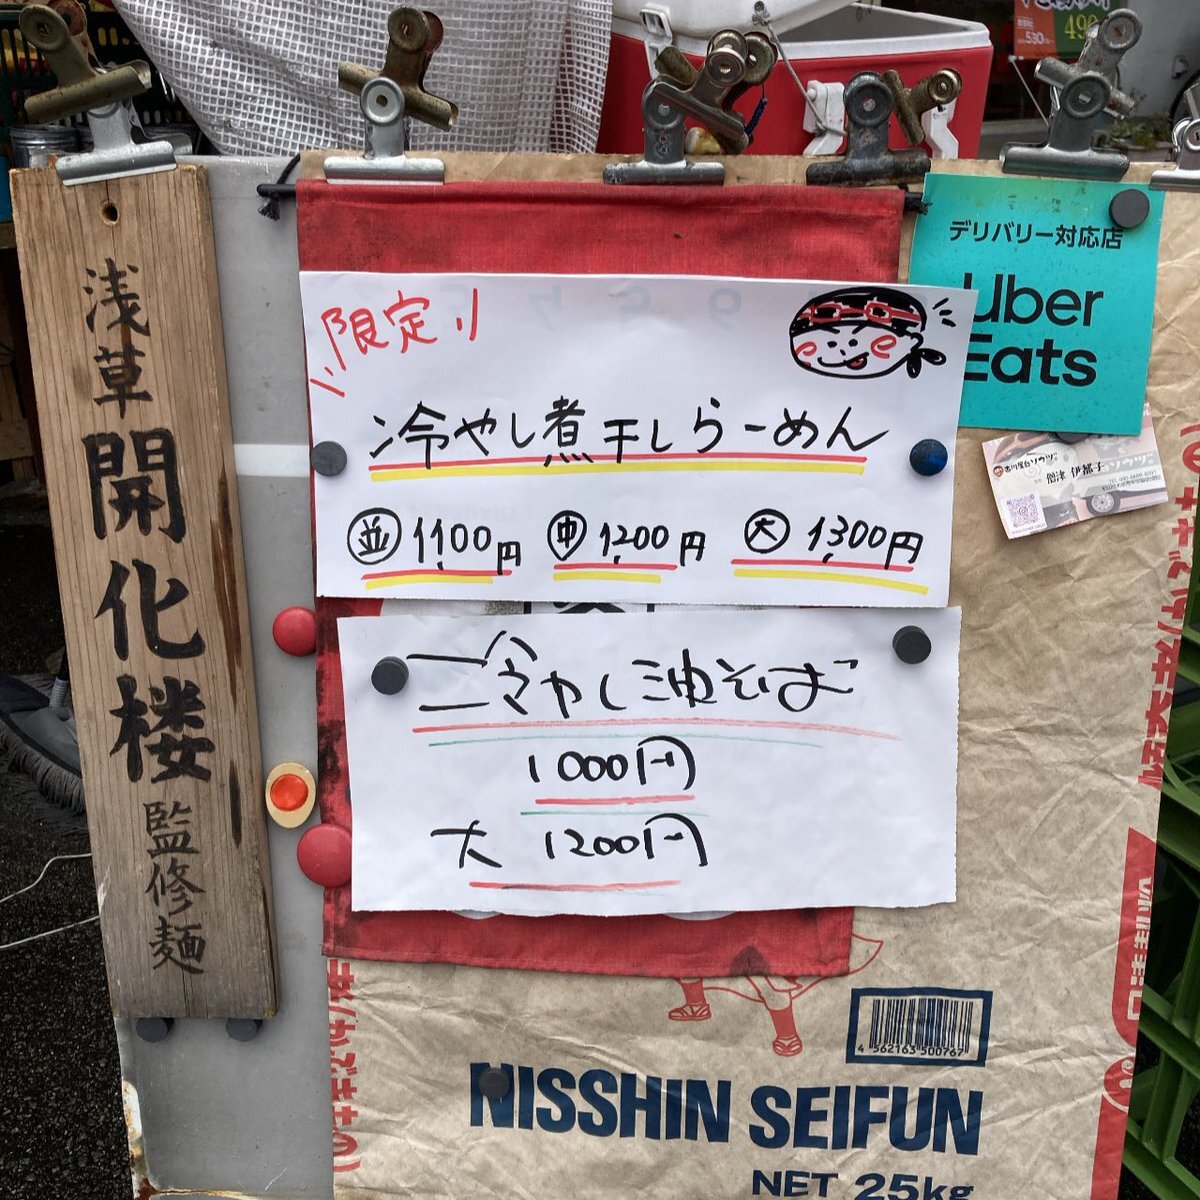 浅草
開化楼
監修麺
限定
冷やし煮干しらーめん
並 1100円 中 1200円 大 1,300円
冷やし油そば
1000円
大 1200円
デリバリー対応店
Uber
Eats
490
530
4 562163 500767
NISSHIN SEIFUN
NET 25kg